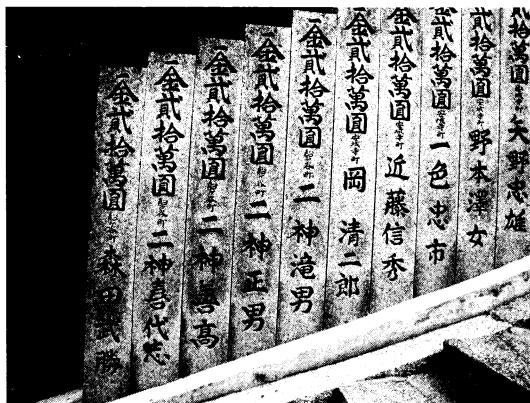 金貳拾萬圓 矢野忠雄
金貳拾萬圓 野本澤女
金貳拾萬圓 一色忠市
金貳拾萬圓 近藤信秀
金貳拾萬圓 岡 清二郎
一金貳拾萬圓 二神滝男
一金貳拾萬圓 二神正男
一金貳拾萬圓 二神喜高
一金貳拾萬圓 二神喜代志
一金貳拾萬圓 森田武勝